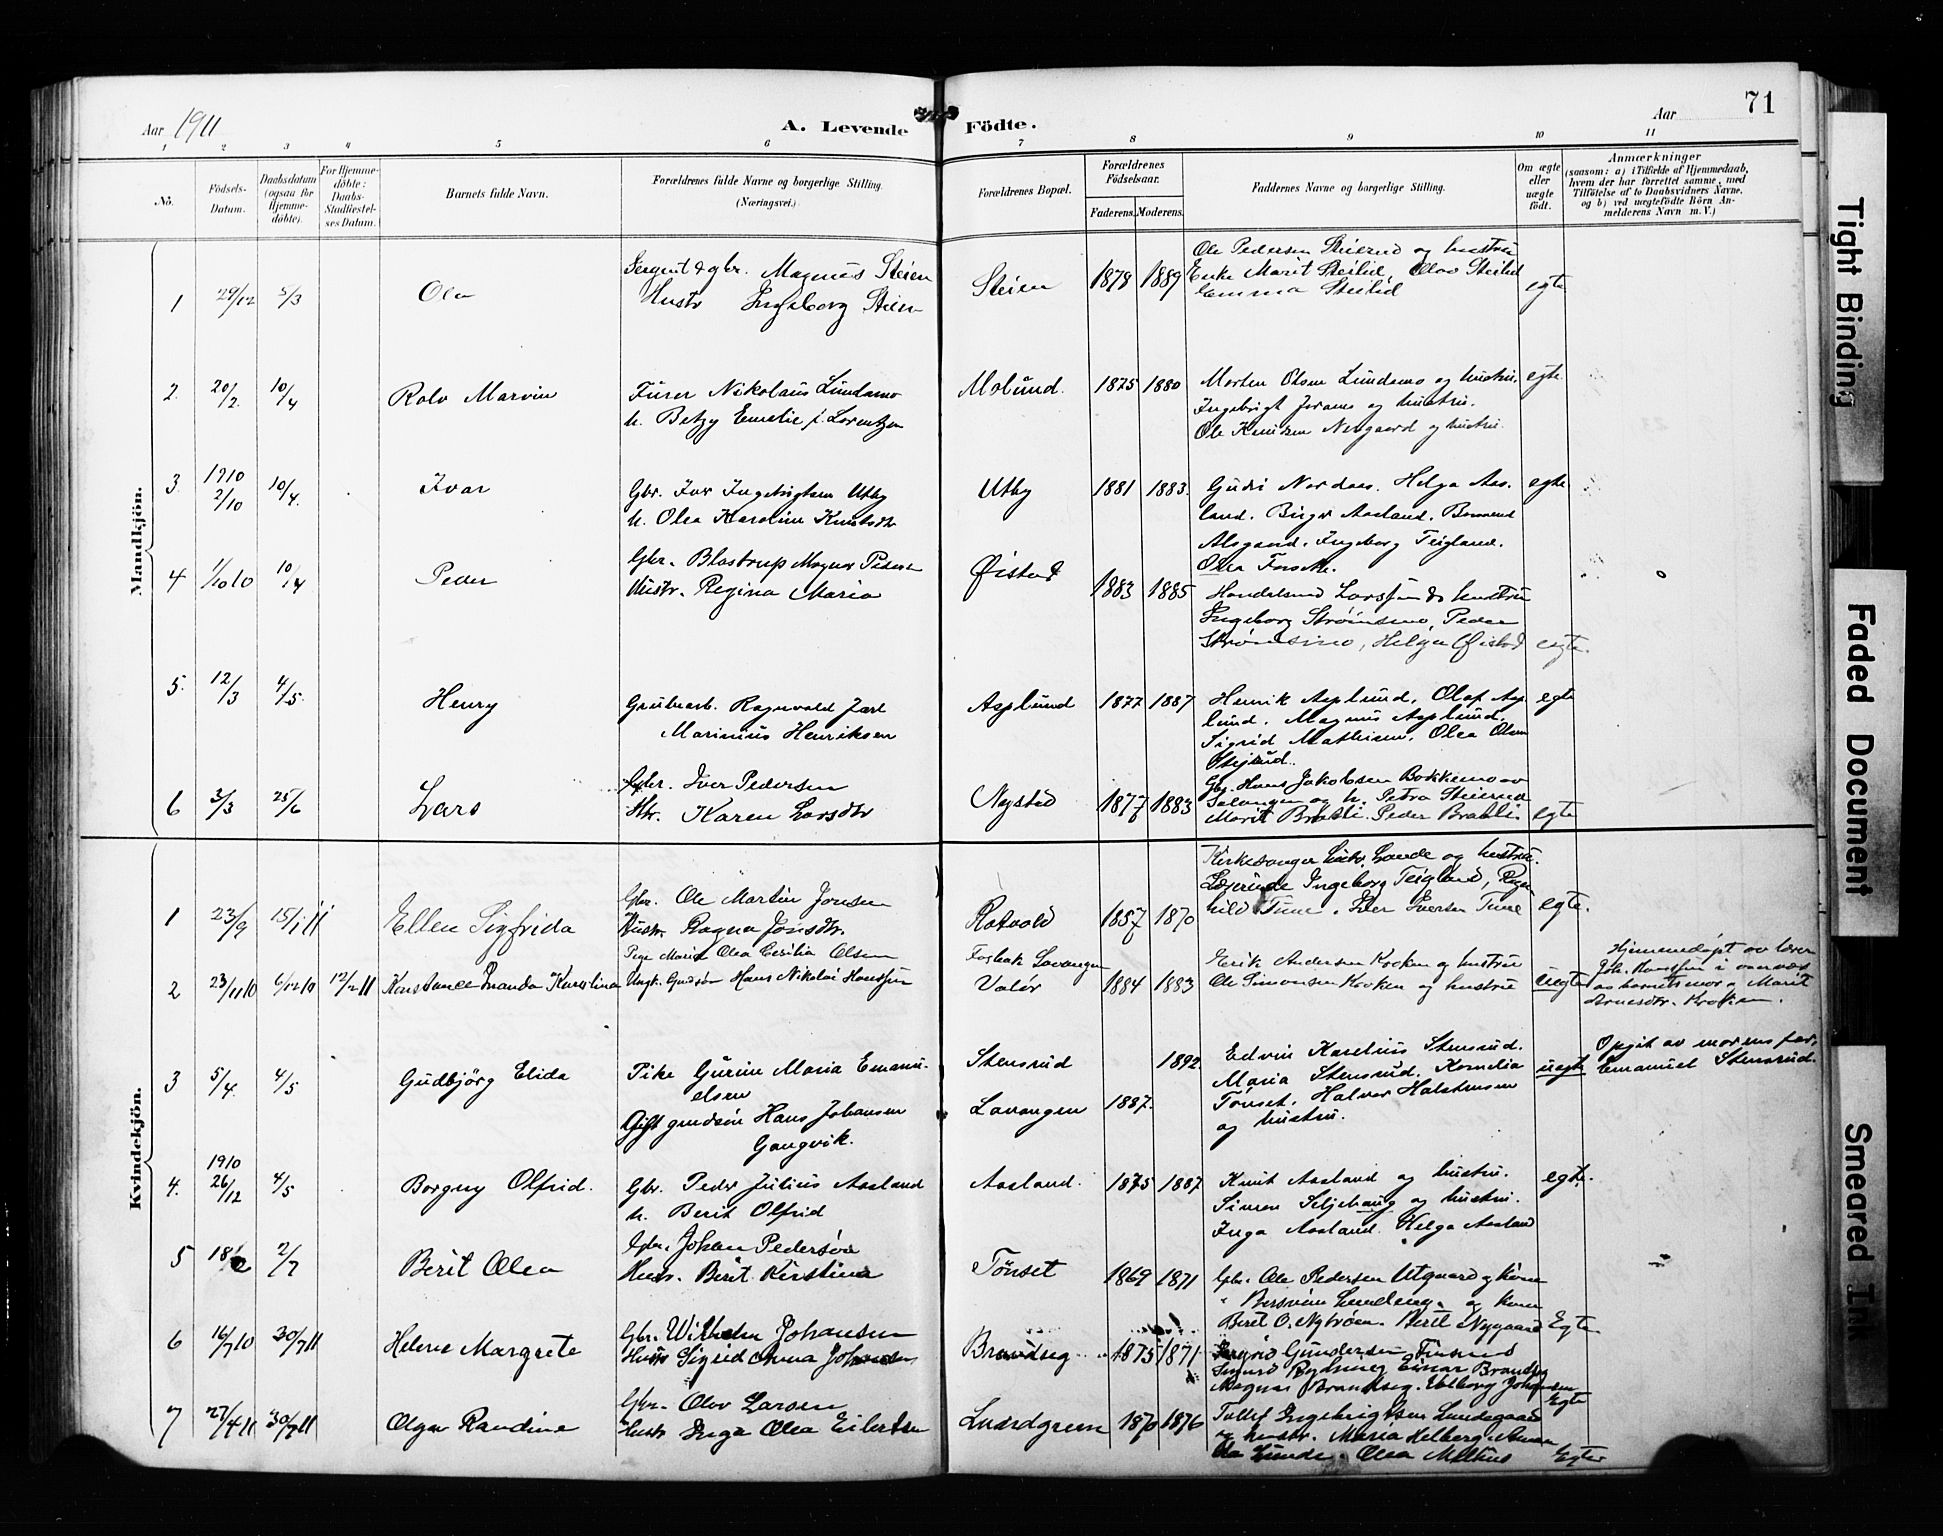 71
Aar 1911
A. Levende Födte.
Aar
1 2 3 4 5 6 7 8 9 10 11
No.
Födsels-Datum.
Daabsdatum (ogsaa for Hjemmedöbte).
For Hjemmedöbte: Daabs-Stadfæstelses Datum.
Barnets fulde Navn.
Forældrenes fulde Navne og borgerlige Stilling. (Næringsvei.)
Forældrenes Bopæl.
Forældrenes Födselsaar.
Faderens. Moderens.
Faddernes Navne og borgerlige Stilling.
Om ægte eller uægte födt.
Anmærkninger
(saasom: a) i Tilfælde af Hjemmedaab,
hvem der har forrettet samme, med
Tilföielse af to Daabsvidners Navne,
og b) ved uægtefödte Börn An-
melderens Navn m. V.)
Mandkjön.
1 29/12 5/3 Ola
Sergent & gbr. Magnus Steien
Hustr Ingeborg Steien
Steien 1878 1889
Ole Pedersen Steierud og hustru
Enke Marit Steilid, Olav Steilid
Emma Steilid
egte
2. 20/2. 10/4 Rolv Marvin
Furer Nikolaus Lundamo
h. Betzy Emelie f. Lorentzen
Molund. 1875 1880
Morten Olsen Lundamo og hustru.
Ingebrigt Joramo og hustru.
Ole Knudsen Nergaard og hustru.
egte
3. 1910 2/10 10/4. Ivar
Gbr. Ivar Ingebrigtsen Utby
h. Olea Karoline Knutsdtr
Utby 1881 1883.
Gudri Nordaas. Helga Aas-
land. Birger Aasland.
Alsgaard. Ingeborg Teigland.
Olea
egte
4 1/10 10 10/4 Peder
Gbr. Blostrup Magnus Peders
Hustr. Regina Maria
Øistad 1883 1885
Handelsmd Larssen & hustru
Ingeborg Strømsmo, Peder
Strømsmo, Helga Øistad
egte.
5. 12/3 4/5. Henry
Grubearb. Ragnvald Jarl
Marinius Henriksen
Asplund 1877 1887
Henrik Asplund. Olaf Asp-
lund. Magnus Asplund.
Sigrid Mathisen. Olea Olsen
egte
6 3/3 25/6 Lars
Gbr. Iver Pedersen
Htr. Karen Larsdtr
Nystad 1877 1883
Gbr. Hans Jakobsen Bakkemo av
Salangen og h. Petra Steierud
Marit Bratli. Peder Bratli.
egte
Kvindekjön.
1 23/9 15/1 11 Ellen Sigfrida
Gbr. Ole Martin Jonsen
Hustr. Ragna Jonsdtr.
Rotvold 1857 1870
Kirkesanger Lande og hustru.
Lærerinde Ingeborg Teigland, Ragn-
hild Tune. Peder Iversen Tune
egte.
2 23/11 10 6/12 10 12/2 11 Konstance Wanda Karolina
Pige Marie Olea Cecilia Olsen
Ungk. Grdsøn Hans Nikolai Hanssen
Lavangen
Valør 1884 1883
Erik Andersen Kroken og hustru
Ole Simonsen Kroken og hustru
uegte
Hjemmedøpt av lærer
Joh. Hanssen i overvær
av barnets mor og Marit
Arnesdtr. Kroken.
3 5/4. 4/5 Gudbjörg Elida
Pike Gurine Maria Emanu-
elsen
Gift grdsön Hans Johansen
Gangvik.
Stensrud 1892
Lavangen 1887.
Edvin Karelius Stensrud.
Maria Stensrud. Kornelia
Tönset. Halvor Halstensen
og hustru.
uegte
Opgit av morens far,
Emanuel Stensrud.
4. 1910 26/12 4/5 Borgny Olfrid.
Gbr. Peder Julius Aasland
h. Berit Olfrid
Aasland. 1875 1887
Knut Aasland og hustru.
Simen Seljehaug og hustru.
Inga Aasland. Helga Aasland
egte.
5 18/ 2/7 Berit Olea
Gbr. Johan Pedersøn
Hustr. Berit Kirstina
Tönset 1869 1871
Gbr. Ole Pedersen Utgaard og kone
" Bersvein Lundeng og kone
Berit O. Nybrøen. Berit Nygaard
Egte
6 16/7 10 30/7 11 Helene Margrete
Gbr. Wilhelm Johansen
Hustr Sigrid Anna Johansen
Brandseg 1875 1871
Sigrid Gundersen Finsnes
Sigurd Ryhaug Einar Brandseg
Magnus Brandseg. Valborg Johansen
Egte
7 27/4 11 30/7 11 Olga Randine
Gbr. Olov Larsen
Hustr Inga Olea Eilertsen
Lundgrenn 1870 1876
Tollef Ingebrigtsen Lundegaard
og hustr. Maria Kelberg. Aman-
da Lunde. Olea Melhus
Egte
Tight Binding
Faded Document
Smeared Ink